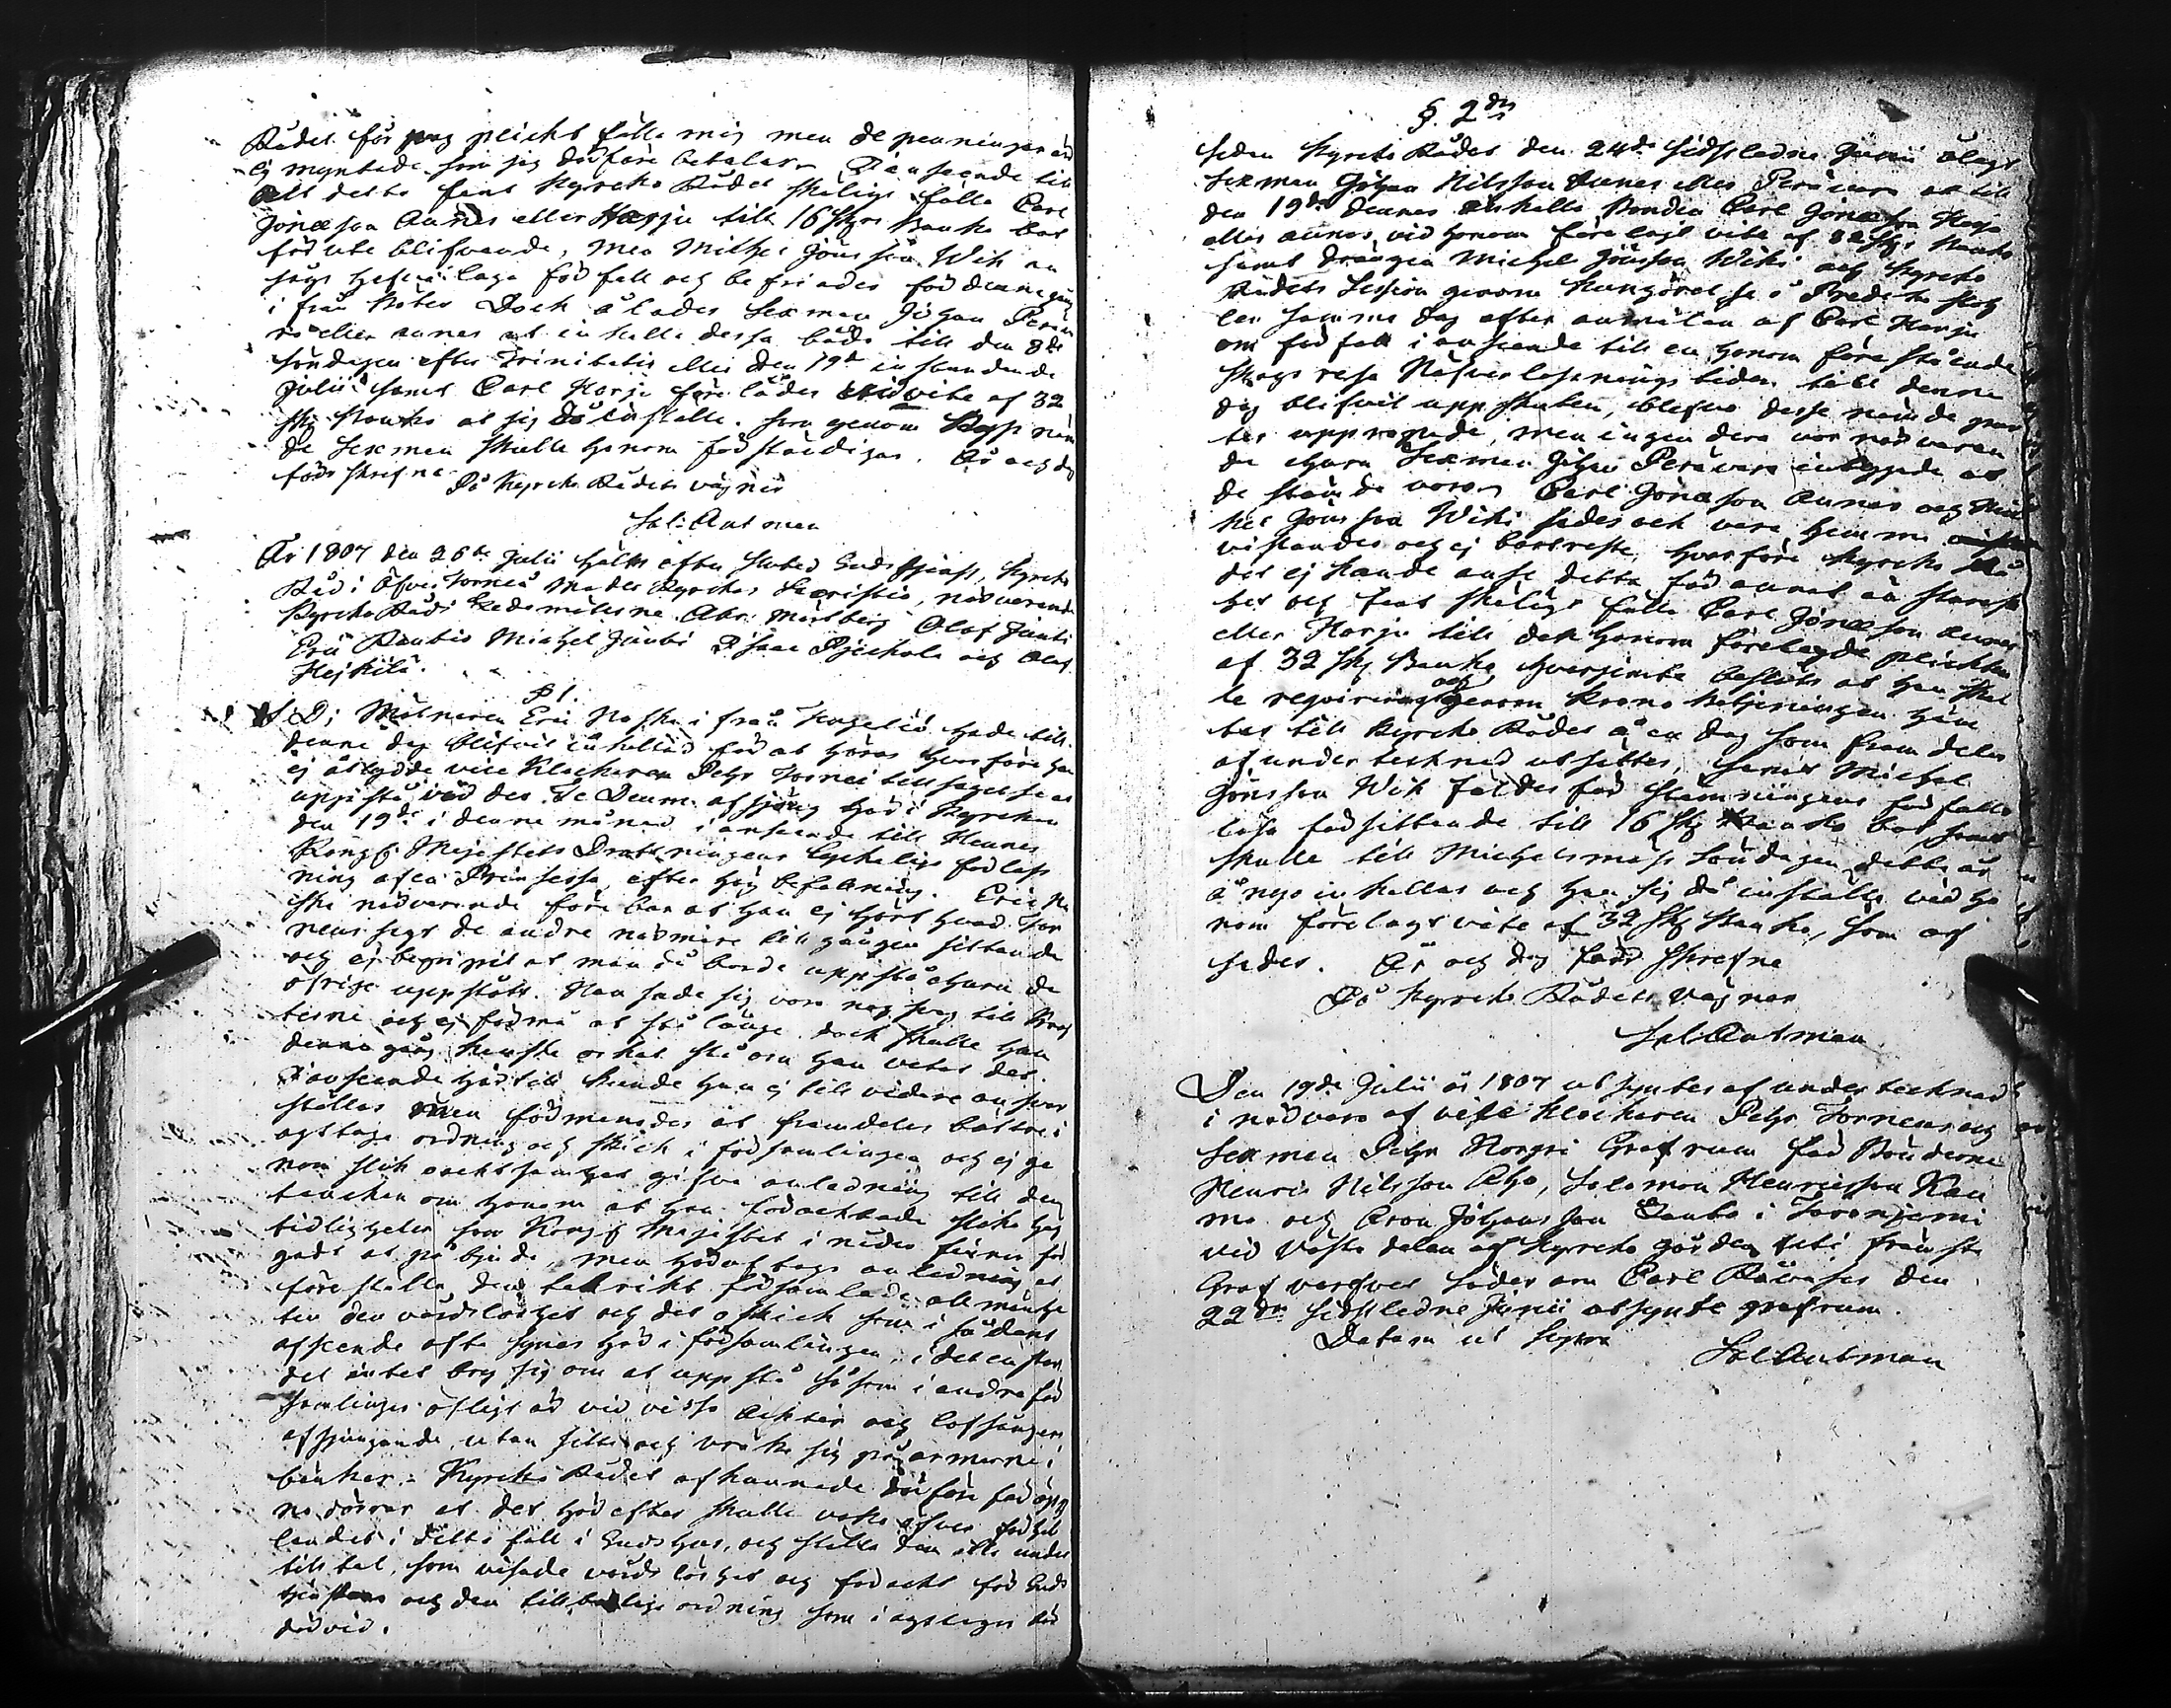 Rådet för jag plickt fälla mig men de penningar äro
ej myntade som jag därföre betalar. I anseende till
Alt detta fant Kyrcko Rådet skäligt fälla Carl
Jönsson Aunes eller Harju till 16 sk Banko bot
för ute blifvande, men Michel Jönsson Wik an
sågs hafva laga förfall och befriades för denna gång
ifrån böter Dock ålades Sexman Johan Perä
eller aunes at inkalla dessa båda till den 8de
söndagen efter Trinitatis eller den 19de instundande
Julii samt Carl Harju före lades vid vite af 32
sk Banko at sig då inställa. som genom Bysmän
de Sexman skulle honom förständigas. År och dag
förr skrifne
På Kyrcko Rådets vägnar
Sal: Antman
År 1807 den 26te Julii hölts efter slutad Gudstjenst, Kyrcko
Råd i Öfver Torneå Moder Kyrckas Sacristia, närvarande
Kyrcko Råds Ledamöterne Abr: Mörtberg Olof Jänti
Eric Rautio Michel Jänti Isaac och Olof
Heikilä.
§ 1.
S: D: Måtneren Eric Naski från hade till
denne dag blifvit inkallad för at höras hvarföre han
ej åtlydde vice Klockaren Petr Tornei tillsägelse at
uppstå vid det Te Deum afsjöng här i Kyrckan
den 19de i denne månad i anseende till Hennes
Kongl. Majestets Drottningens lyckeliga förloss
ning af en Prinsessa, efter hög befalning. Eric Na
ski närvarande förebar at han ej hört hvad Tor
neus sagt de andra närmare till gången sittande
och ej begripit at man då borde uppstå ehuru de
öfrige uppstått. Han sade sig vara nog svag till krop
terne och ej förmå at stå länge dock skulle han
denna gång kanske orkat stå om han vetat det.
I anseende härtill kunde han ej till vidare ansvar
ställas men förmanades at framdeles bättre i
agttaga ordning och skick i församlingen och ej ge
nom slik oachtsamhet gifva anledning till den
tancken om honom at han förachtade slika hög
tidligheter som Kongl Majestet i nåder finner för
godt at på bjuda, men häraf togs anledning at
föreställa den talrikt församlade allmänhe
ten den vårdslöshet och det oskick som i sådant
afseende ofta synes här i församlingen, i det en stor
del intet bry sig om at uppstå såsom i andra för
samlingar öfligt är vid vissa Achter och lofsånger
afsjungande, utan sitta och vräka sig på armarne i
bänkar. Kyrcko Rådet afkunnade därföre för öpp
na dörrar at det här efter skulle vaka öfver förhål
landet i detta fall i Guds hus, och ställa den alla under
tilltal, som visade vårdslöshet och foracht för Guds
tjensten och den tillbörliga ordning som i agttages bör
därvid.
§. 2do
Sedan Kyrcko Rådet den 24de sidstledne Junii ålagt
Sexman Johan Nilsson Aunes eller Perävara at till
den 19de dennes inkalla Bonden Carl Jönsson Harju
eller aunes vid honom förelagt vite af 32 sk Banko
samt drängen Michel Jönsson Wiki och Kyrcko
Rådets Session genom kungörelse i Predik stoh
len samma dag efter anmälan af Carl Harju
om förfall i anseende till en honom förestående
skogs resa Näfver lossnings tiden till denna
dag blifvit uppskuten, blefvo desse nämde par
ter uppropade, men ingen dera var närvaran
de ehuru Sexman Johan Perävara intygade at
de stämde voro. Carl Jönsson Aunes och Mi
hel Jönsson Wiki sades och vara hemma
vistandes och ej bortreste, hvarföre Kyrcko Rå
det ej kunde anse detta för annat än tresk
het och fant skäligt fälla Carl Jönsson Aunes
eller Harju till den honom förelagde plickten
af 32 sk Banko, hvarjemte beslöts at han skul
le reqvireras och genom Krono betjeningen häm
tas till Kyrcko Rådet å en dag som framdeles
af undertecknad utsättes, samt Michel
Jönsson Wik fäldes för Stämningens förfallo
lösa försittande till 16 sk Banko bot, samt
skulle till Michelsmässo Söndagen detta år
å nyo inkallas och han sig då inställa vid ho
nom förelagt vite af 32 sk Banko, som af
sades. År och dag förr skrefne
På Kyrcko Rådets vägnar
Sal: Antman
Den 19de Julii år 1807 utsyntes af undertecknad
i närvaro af vice Klockaren Petr Torneus och
Sexman Petr Korpi Grafrum för Bönderne
Henric Nilsson Aho, Salomon Henricsson Kau
ma och Aron Johansson Tauta i Toranjemi
vid västra delen af Kyrcko gården inti främsta
Graf varfvet söder om Carl den
22dra sidstledne Junii utsynte grafrum.
Datum ut supra
Sal: Antman